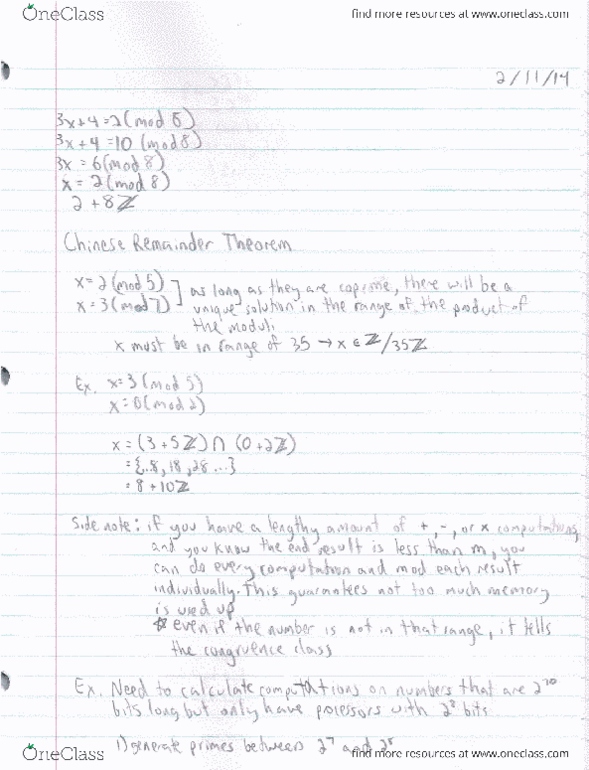 OneClass find more resources at www.oneclass.com
2/11/14
3x+4=2(mod 8)
3x+4=10 (mod 8)
3x=6(mod 8)
x=2(mod 8)
2+8ℤ
Chinese Remainder Theorem
x=2(mod 5) ] as long as they are coprime, there will be a
x=3(mod 7) unique solution in the range of the product of
the moduli
x must be in range of 35 → x ∈ ℤ/35ℤ
Ex. x=3(mod 5)
x=0(mod 2)
x=(3+5ℤ)∩(0+2ℤ)
={..8,18,28...}
=8+10ℤ
Side note: if you have a lengthy amount of +,-, or x computations,
and you know the end result is less than m, you
can do every computation and mod each result
individually. This guarantees not too much memory
is used up
* even if the number is not in that range, it tells
the congruence class
Ex. Need to calculate computations on numbers that are 2^20
bits long but only have processors with 2^8 bits
1) generate primes between 2^7 and
OneClass find more resources at www.oneclass.com